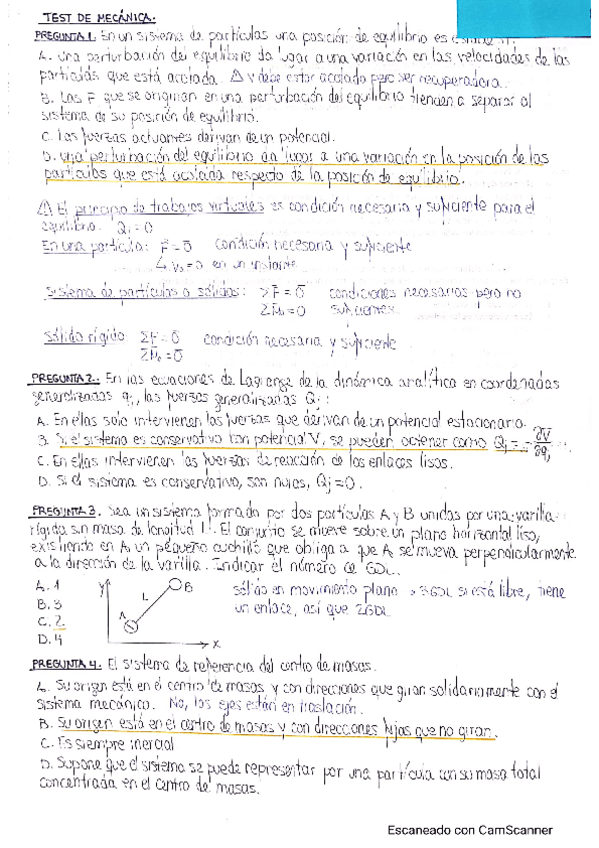 TEST DE MECÁNICA.
PREGUNTA 1. En un sistema de partículas una posición de equilibrio es
A. Una perturbación del equilibrio da lugar a una variación en las velocidades de las
partículas que está acotada. ⚠ y debe estar acotado pero ser recuperadora.
B. Las F que se originan en una perturbación del equilibrio tienden a separar al
sistema de su posición de equilibrio.
C. Las fuerzas actuantes derivan de un potencial.
D. Una perturbación del equilibrio da lugar a una variación en la posición de las
partículas que está acotada respecto de la posición de equilibrio.
⚠ El principio de trabajos virtuales es condición necesaria y suficiente para el
equilibrio. Qj = 0
En una partícula: F = 0 condición necesaria y suficiente
↳ v₀ = 0 en un instante
Sistema de partículas o sólidos: ΣF = 0 condiciones necesarias pero no
ΣM₀ = 0 suficientes
Sólido rígido ΣF = 0 condición necesaria y suficiente
ΣM₀ = 0
PREGUNTA 2. En las ecuaciones de Lagrange de la dinámica analítica en coordenadas
generalizadas qj, las fuerzas generalizadas Qj:
A. En ellas solo intervienen las fuerzas que derivan de un potencial estacionario.
B. Si el sistema es conservativo con potencial V, se pueden obtener como Qj = -∂V/∂qj
C. En ellas intervienen las fuerzas de reacción de los enlaces lisos.
D. Si el sistema es conservativo, son nulas, Qj = 0.
PREGUNTA 3. Sea un sistema formado por dos partículas A y B unidas por una varilla
rígida sin masa de longitud l. El conjunto se mueve sobre un plano horizontal liso,
existiendo en A un pequeño cuchillo que obliga a que A se mueva perpendicularmente
a la dirección de la varilla. Indicar el número de GDL.
A. 1
B. 3
C. 2
D. 4
Y
B
L
A
X
sólido en movimiento plano → 3GDL si está libre, tiene
un enlace, así que 2GDL
PREGUNTA 4. El sistema de referencia del centro de masas.
A. Su origen está en el centro de masas y con direcciones que giran solidariamente con el
sistema mecánico. No, los ejes están en traslación.
B. Su origen está en el centro de masas y con direcciones fijas que no giran.
C. Es siempre inercial
D. Supone que el sistema se puede representar por una partícula con su masa total
concentrada en el centro de masas.
Escaneado con CamScanner